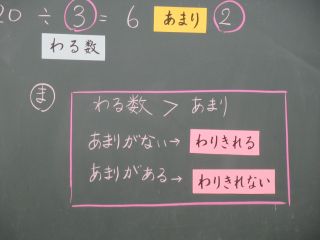 20 ÷ ③ = 6 あまり ②
わる数
ま
わる数 > あまり
あまりがない→ わりきれる
あまりがある→ わりきれない